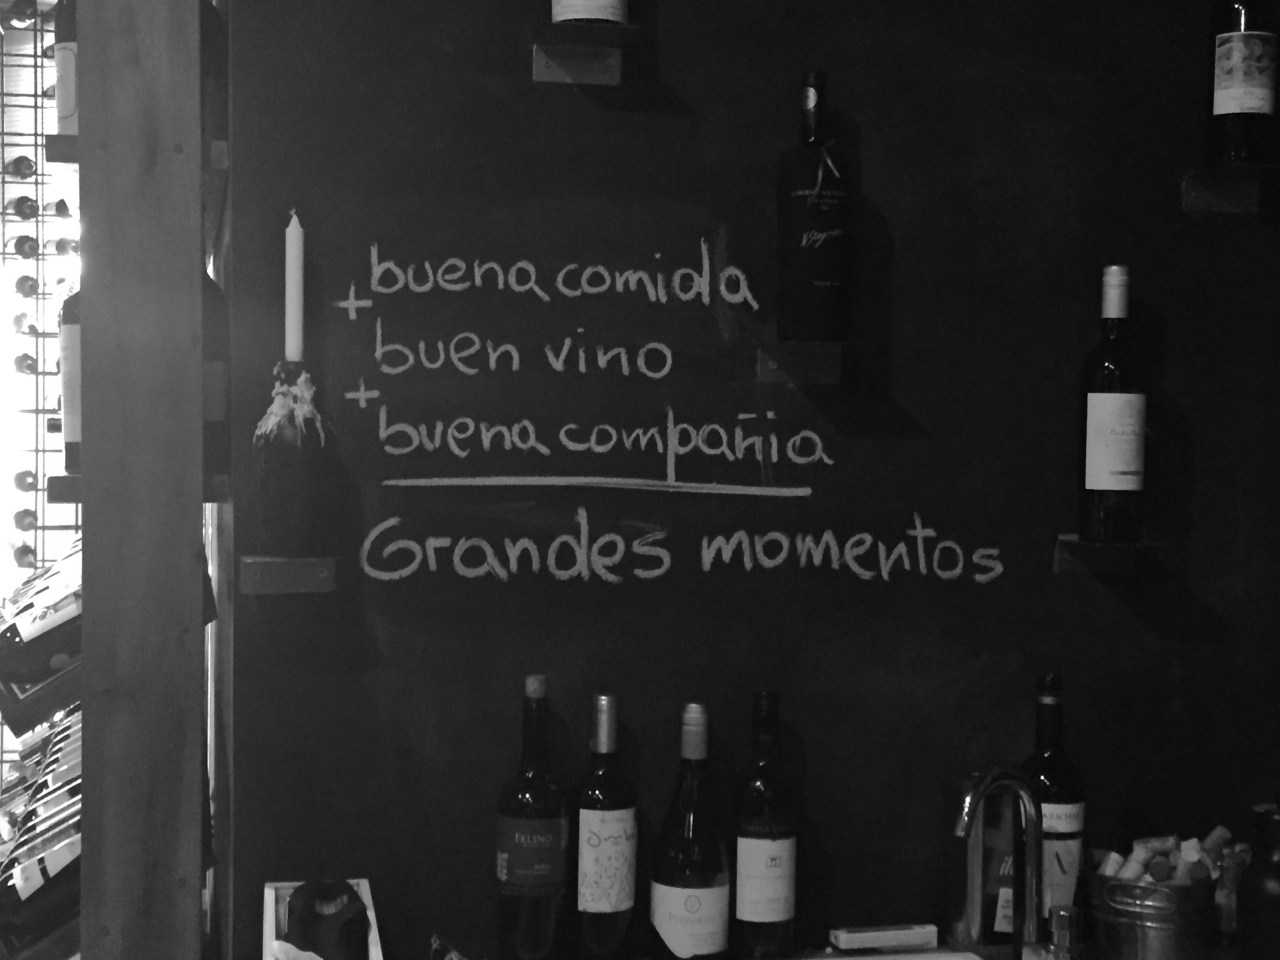 buena comida
+
buen vino
+
buena compañia
Grandes momentos
FELINO